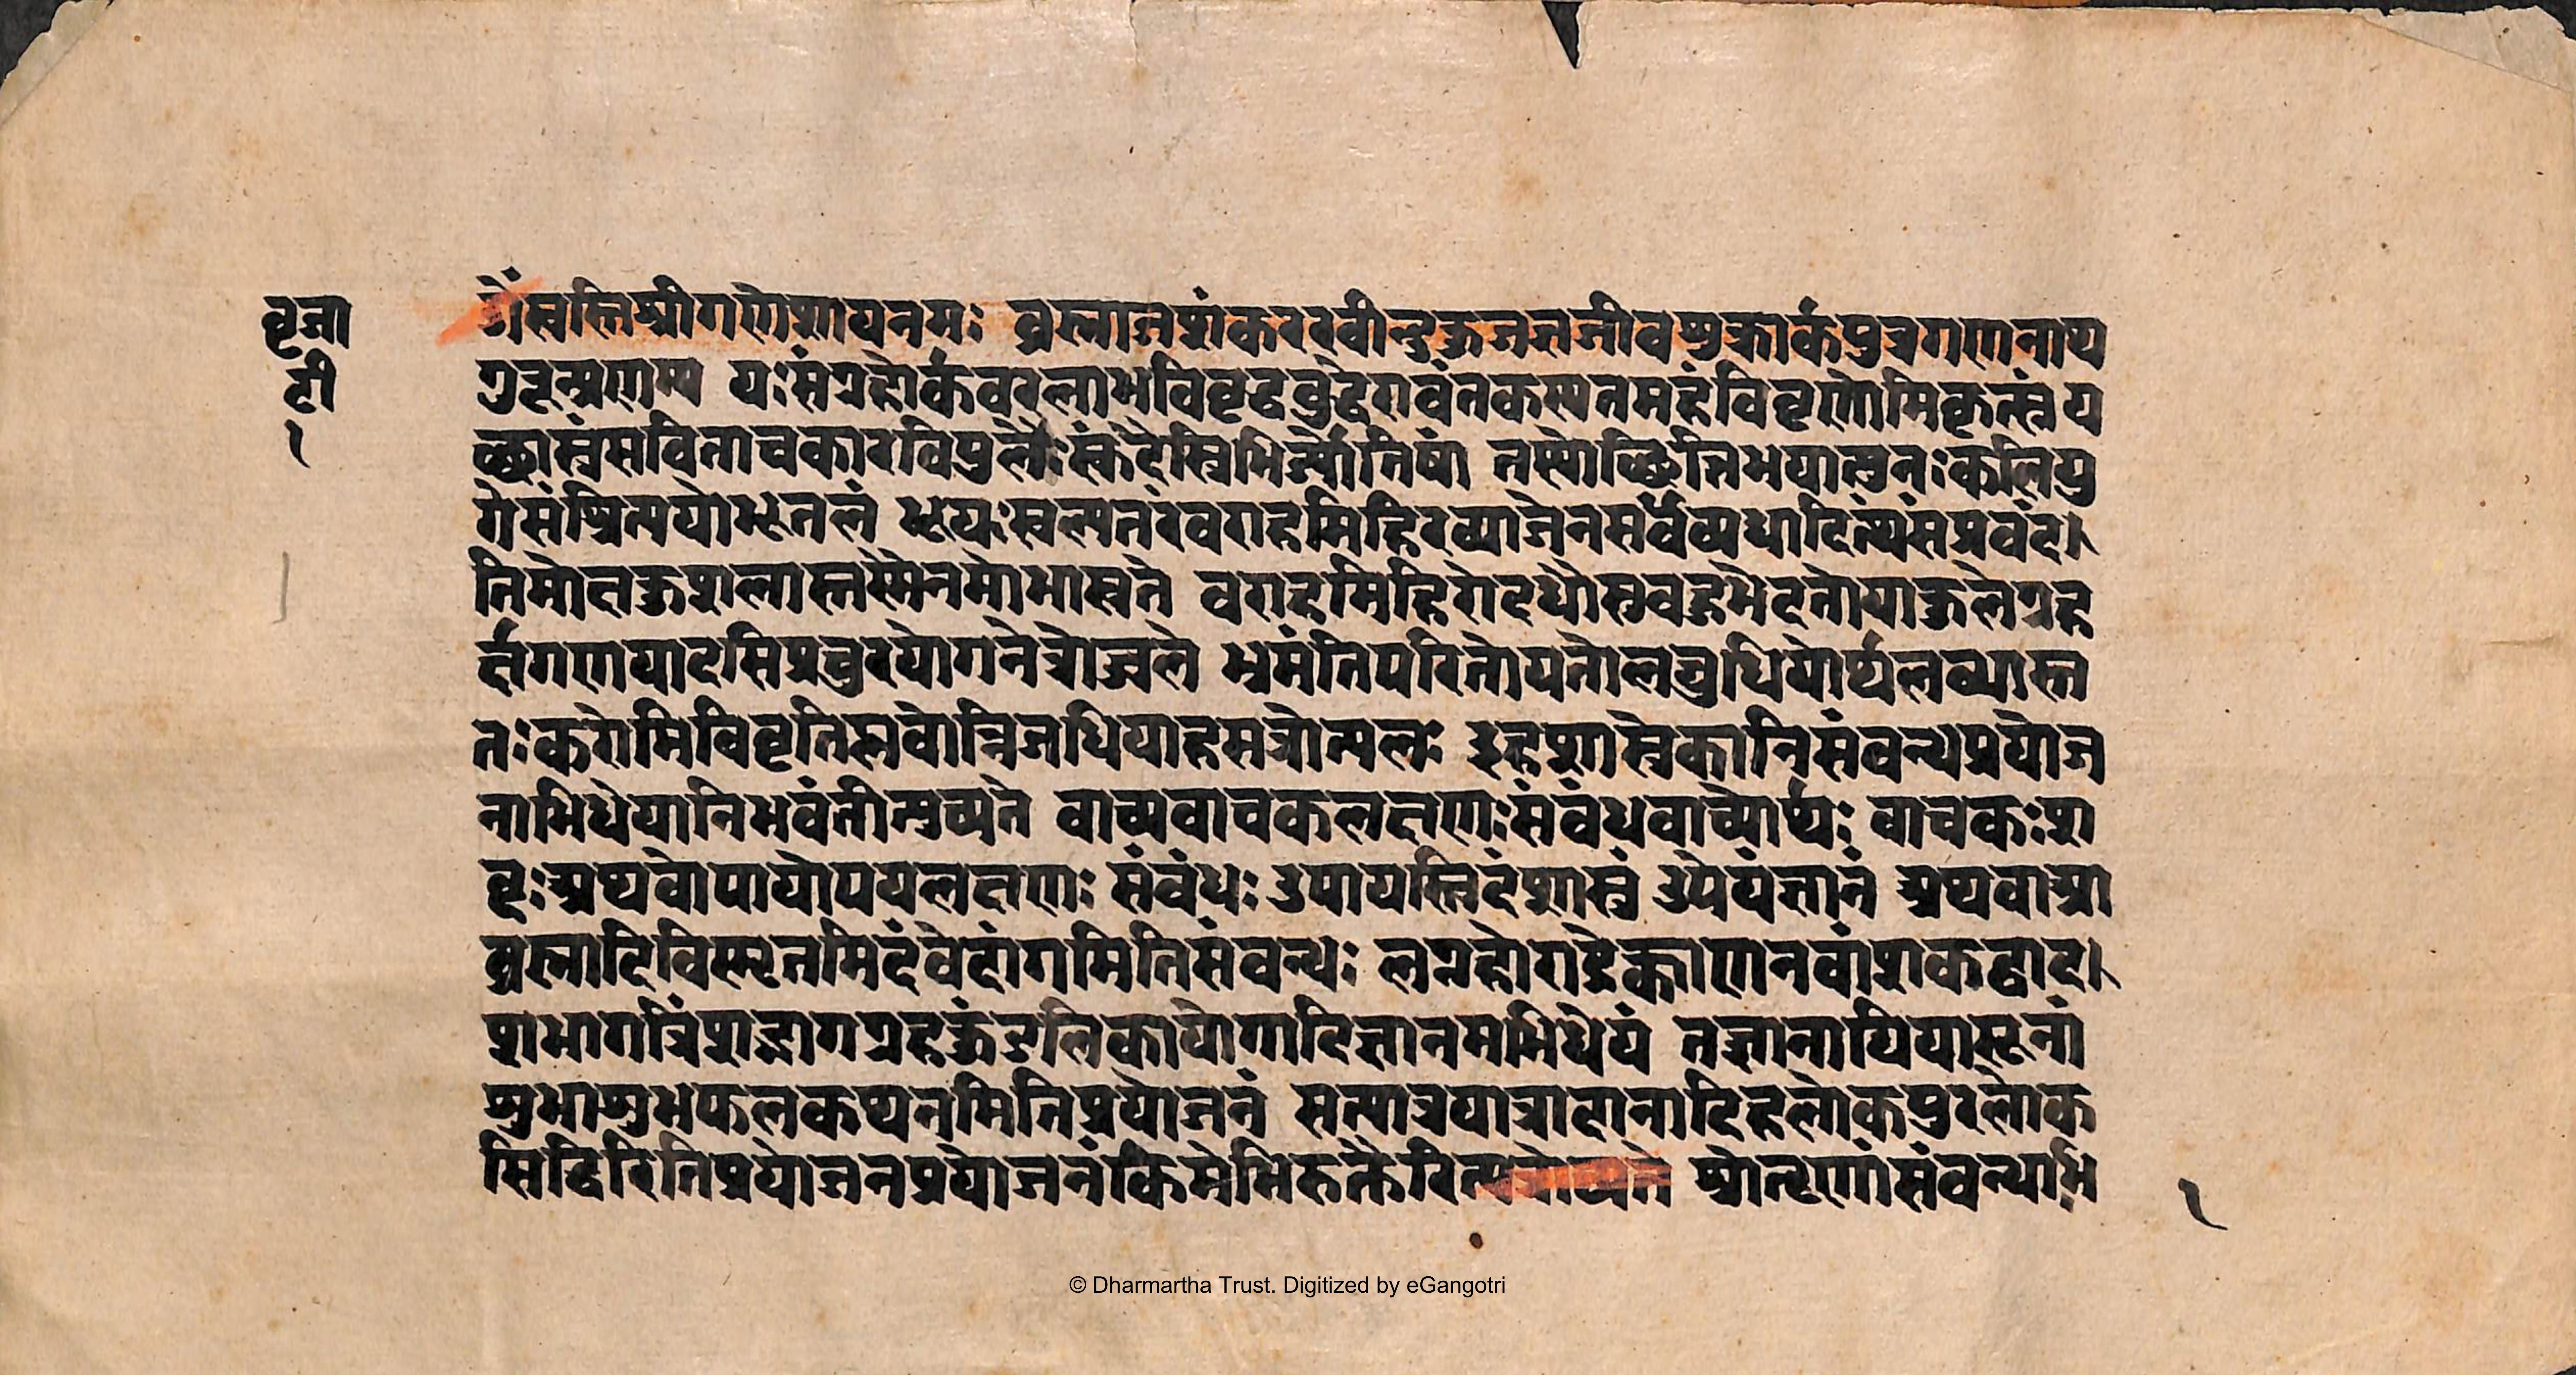 वृजा
टी
१
ओंस्वस्तिश्रीगणेशायनमः ब्रह्माजशंकररवीन्दुकुजज्ञजीवशुक्रार्कपुत्रगणनाथ
गुरून्प्रणम्य यःसंग्रहोर्कवरलाभविवृद्धबुद्धेरावंतकस्यतमहंविवृणोमिकृत्स्नं य
च्छास्त्रंसविताचकारविपुलैःस्कंदैस्त्रिभिर्ज्योतिषां तस्योच्छित्तिभयात्पुनःकलियु
गेसंश्रित्ययोभूतलं भूयःस्वल्पतरंवराहमिहिरव्याजेनसर्वंव्यधादित्थंसप्रवंद।
तिमोक्षकुशलास्तस्मैनमोभास्वते वराहमिहिरोदधौसुबहुभेदतोयाकुलेग्रह
र्क्षगणयादसिप्रचुरयोगरत्नोज्वले भ्रमंतिपरितोयतोलघुधियोर्थलब्धास्त
तःकरोमिविवृतिप्लवांनिजधियाहमत्रोत्पलः इहशास्त्रेकानिसंबन्धप्रयोज
नाभिधेयानिभवंतीत्युच्यते वाच्यवाचकलक्षणःसंबंधवाच्योर्थः वाचकःश
ब्दःअथवोपायोपेयलक्षणः संबंधः उपायस्त्विदंशास्त्रं उपेयंज्ञानं अथवाआ
ब्रह्मादिविसृतमिदंवेदांगमितिसंबन्धः लग्नहोराद्रेक्काणनवांशकद्वाद।
शभागत्रिंशद्भागग्रहकुंडलिकायोगादिज्ञानमभिधेयं तज्ज्ञानाधियासूनां
शुभाशुभफलकथनमितिप्रयोजनं सत्पात्रपात्रादानादिहलोकपुरलोक
सिद्धिरितिप्रयोजनप्रयोजनंकिमेभिरुक्तैरित्यत्रोच्यते श्रोतॄणांसंबन्धाभि
१
© Dharmartha Trust. Digitized by eGangotri